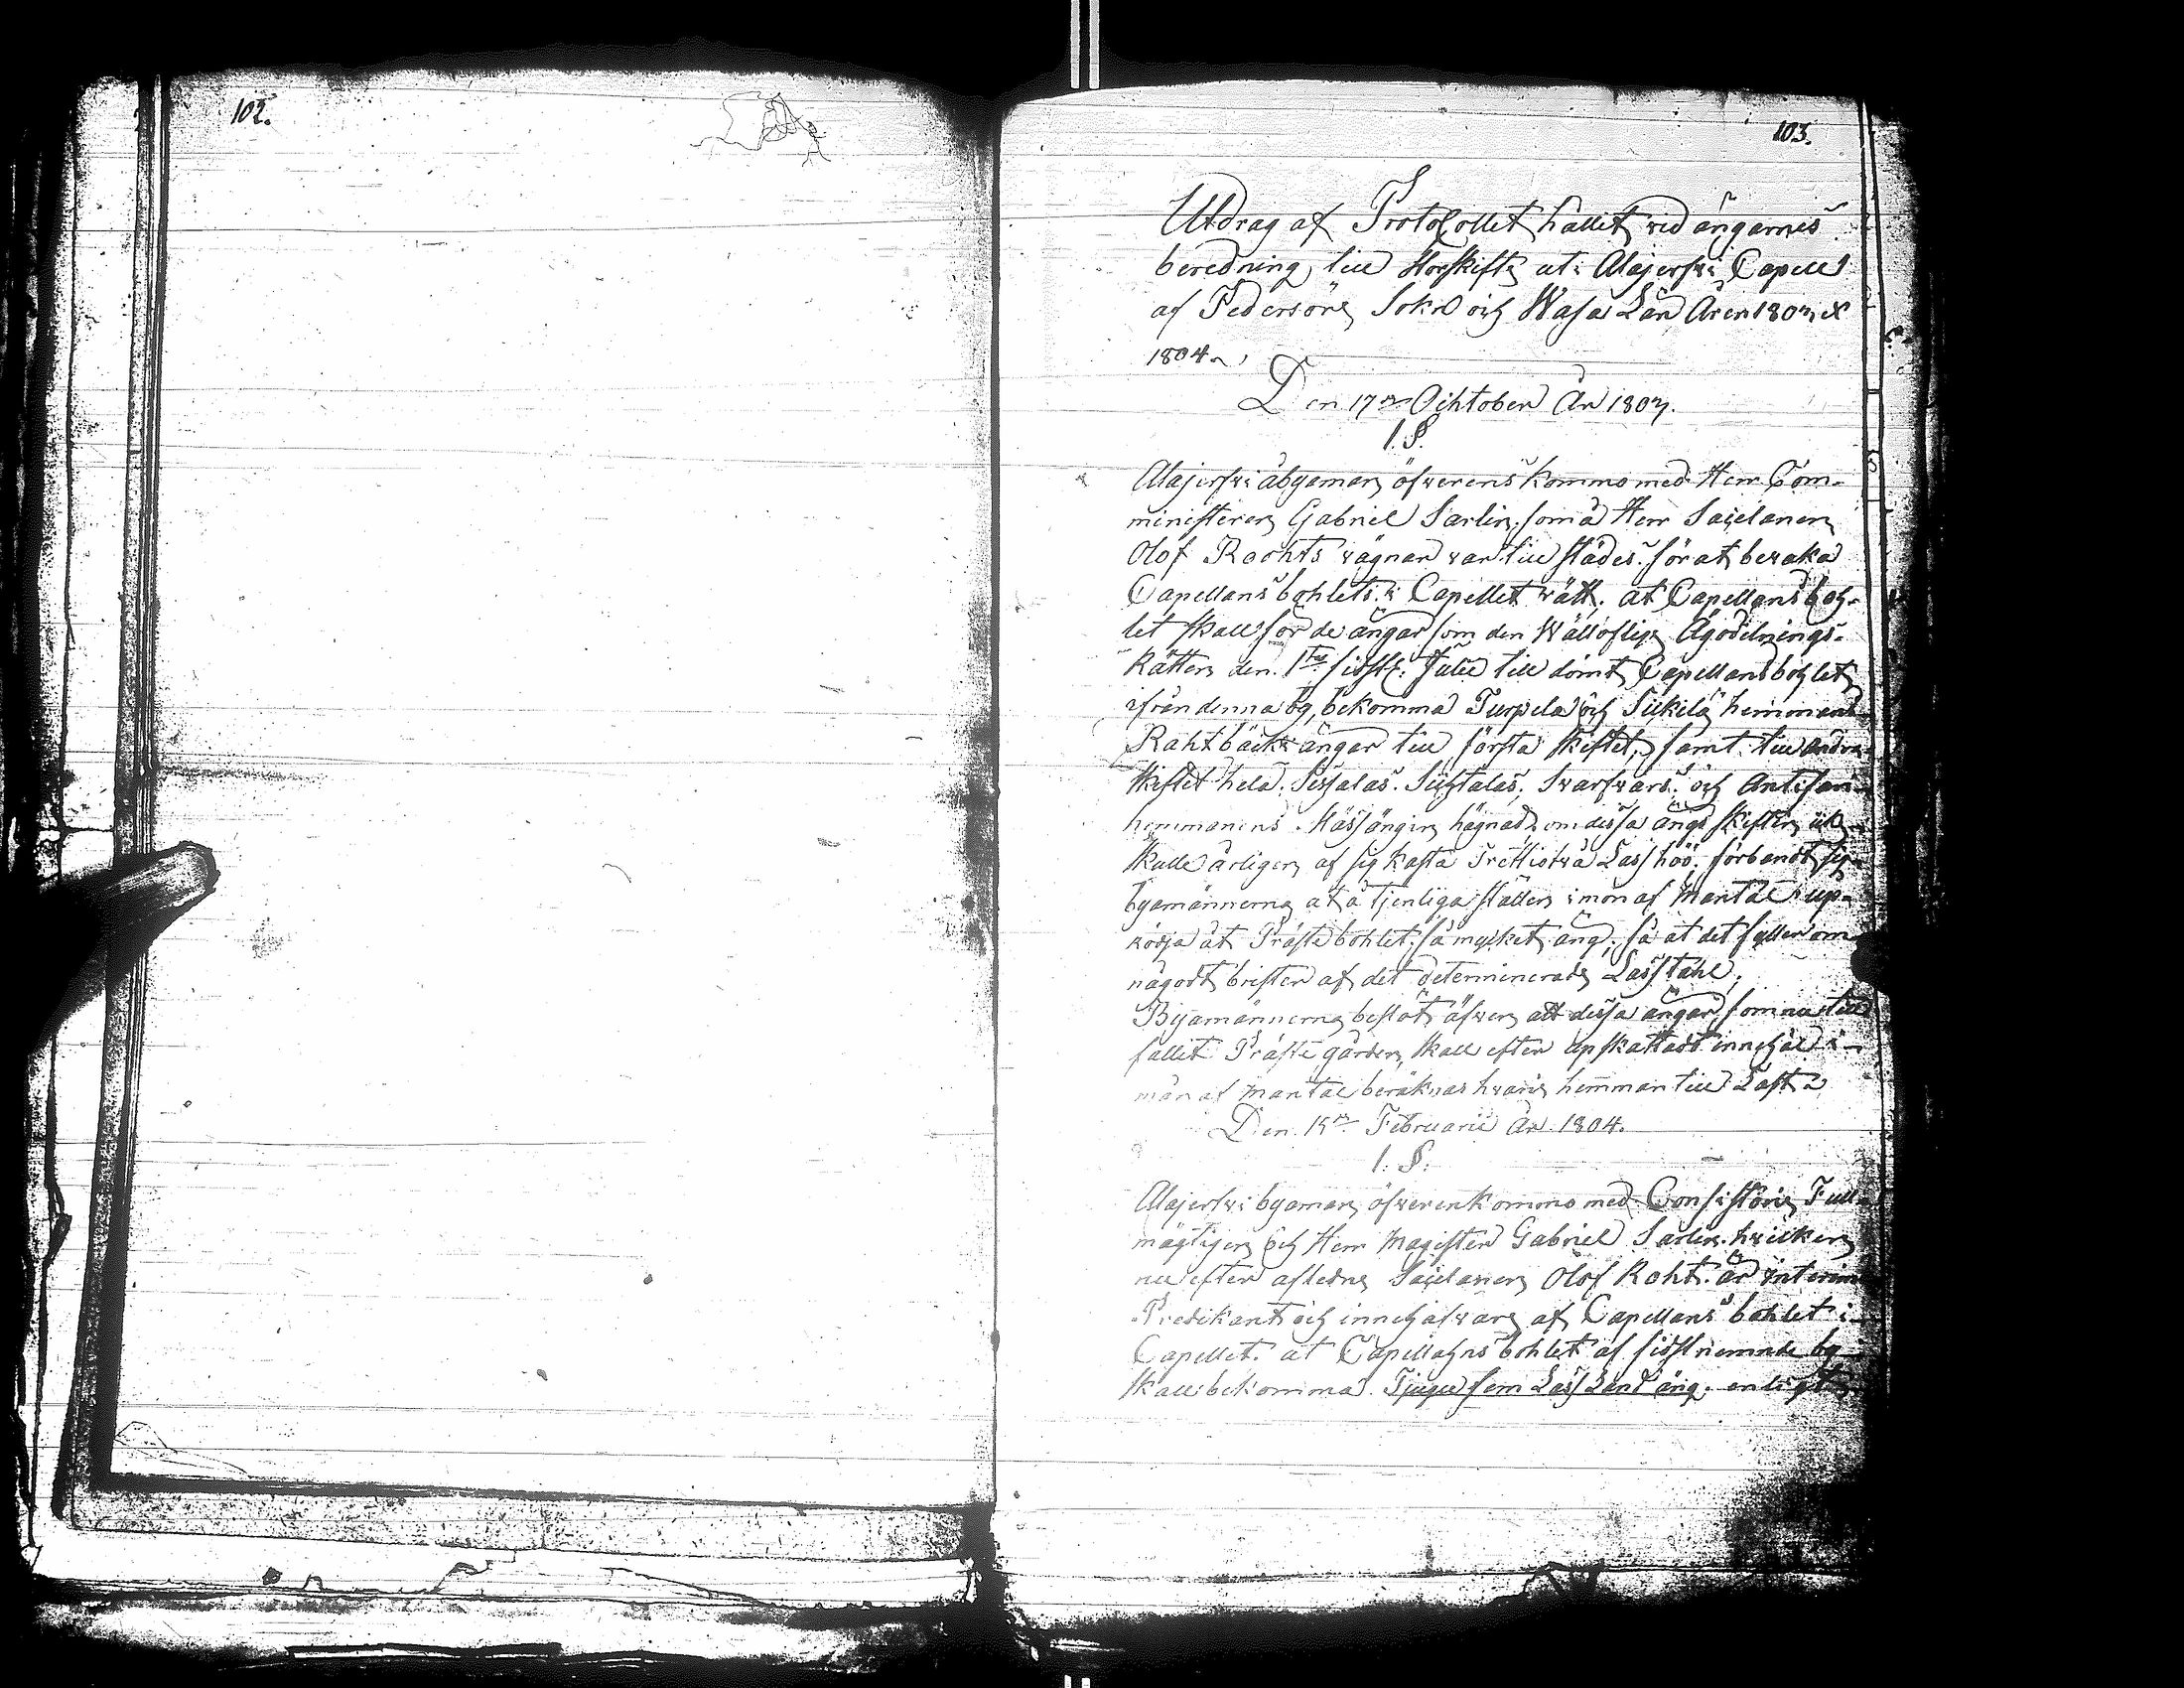 102.
103.
Utdrag af Protocollet hållet wid ängarnes
beredning till Storskifte uti Alajerfwi Capell
af Pedersöre Sokn och Wasa Län Åren 1803 &
1804.
Den 17de Ochtober År 1803.
1. §.
Alajerfwi åbyamän öfwerens kommo med Herr Com-
ministeren Gabriel Sarlin, som å Herr Sacelanen
Olof Rochts wägnar war till städes för at bewaka
Capellans bohlets i Capellet rätt; at Capellans boh-
let skall för de ängar som den Wällofliga Ägodelnings-
Rätten den 1sta sidstl. Julii till dömt Capellansbohlet
ifrån denna by, bekomma Turpela och Siekilä hemmans
Rahtbäcks ängar till första skiftet, samt till andra
skiftet hela Sissalas. Siistalas, Swarfwars och
hemmanens Hässängin hägnad, om dessa ängs skiften ick
skulle årligen af sig kasta Trettiotwå Lass höö, förbandt sig
byamännerne at å tjenliga ställen i mon af Mantal up-
rödja åt Prästebohlet, så mycket äng, så at det fyller om
något brister af det determinerade Lasstahl;
Byamännerne beslöt äfwen att dessa ängar som nu till
fallit Prästegården, skall efter upskattadt innehåll i
mån af Mantal beräknas hwarie hemman till Last
Den 15de Februarii År 1804.
1. §.
Alajerfwi byamän öfwerenkommo med Consistorie Full-
mägtigen och Herr Magister Gabriel Sarlin, hwilken
nu efter aflidne Sacelanen Olof Roht är interims
Predikant och innehafware af Capellans bohlet i
Capellet. at Capellahns bohlet af sidstnemnde by
skall bekomma Tjugu fem Lass Land äng, enligt